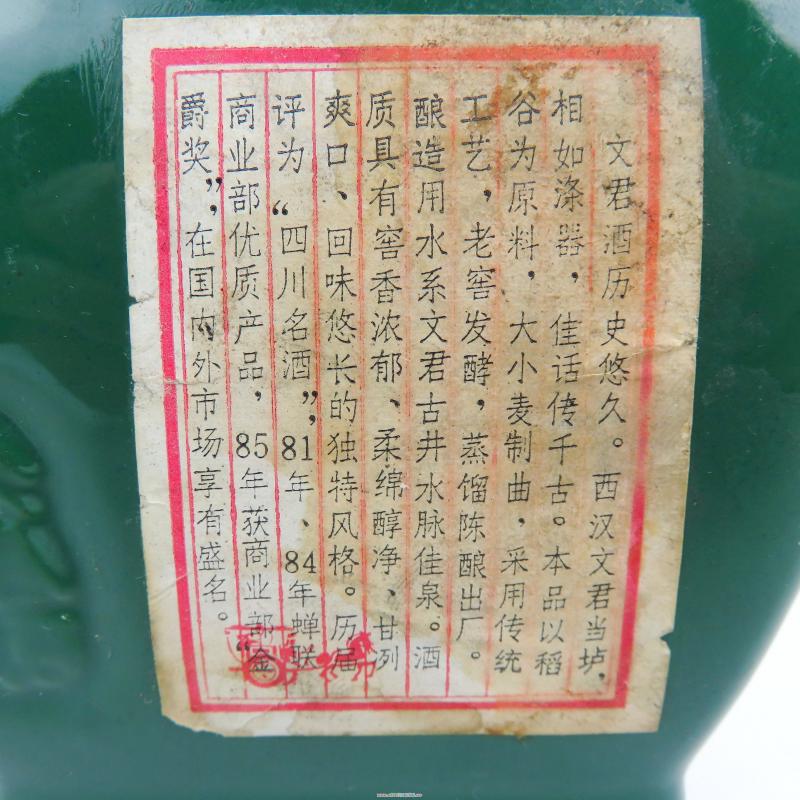 文君酒历史悠久。西汉文君当垆,
相如涤器，佳话传千古。本品以稻
谷为原料，大小麦制曲，采用传统
工艺，老窖发酵，蒸馏陈酿出厂。
酿造用水系文君古井水脉佳泉。酒
质具有窖香浓郁、柔绵醇净、甘冽
爽口、回味悠长的独特风格。历届
评为“四川名酒”，81年、84年蝉联
商业部优质产品，85年获商业部“金
爵奖”，在国内外市场享有盛名。